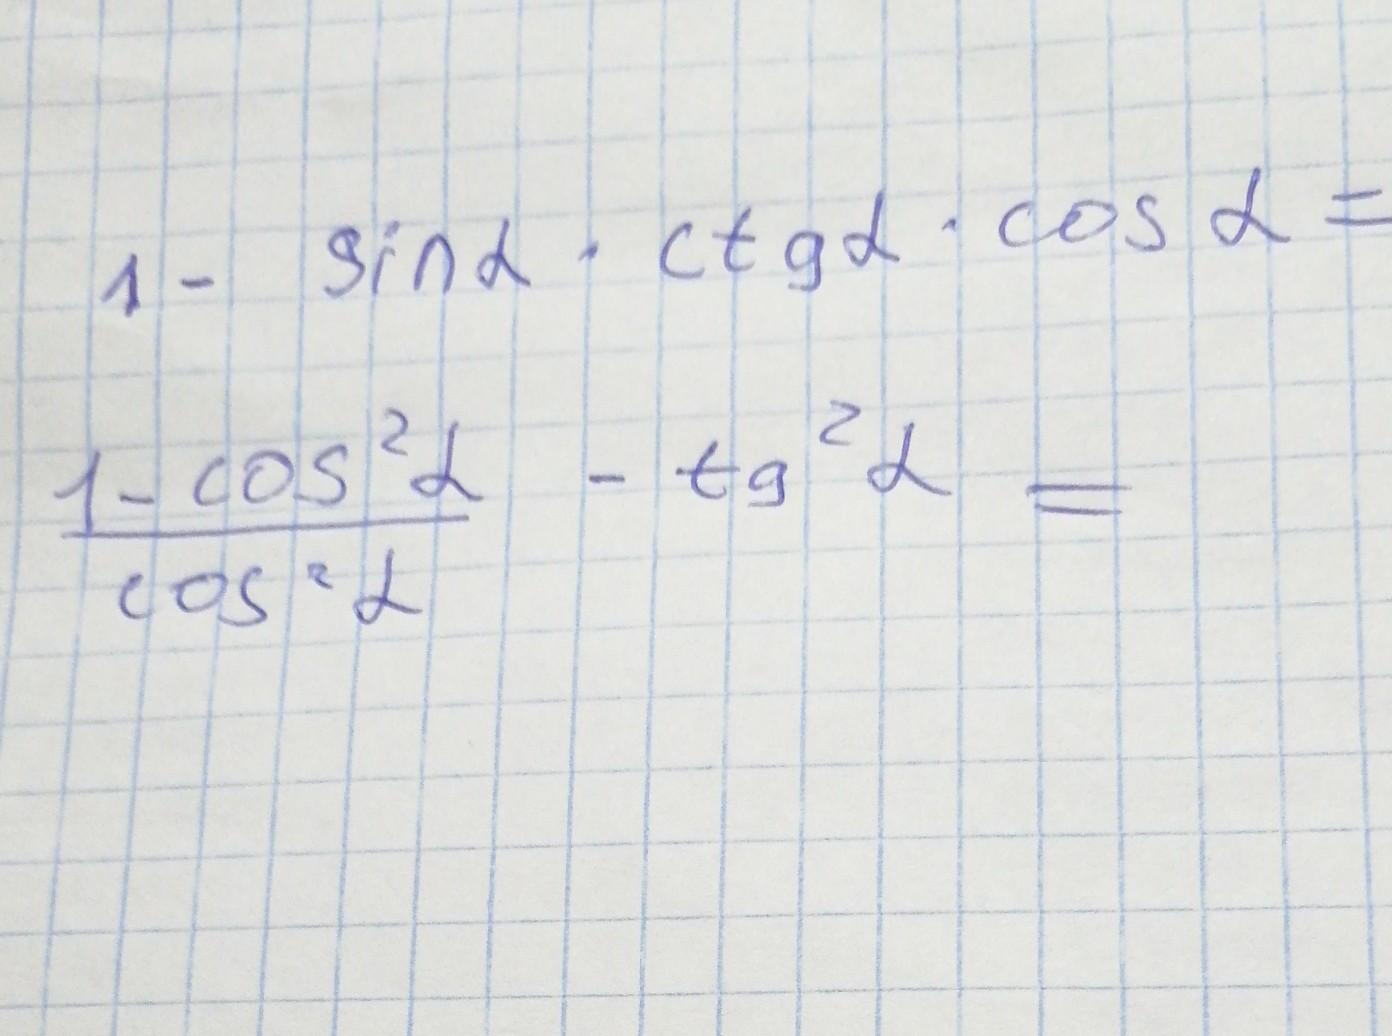 1 - sinα · ctgα · cosα =
1-cos²α / cos²α - tg²α =